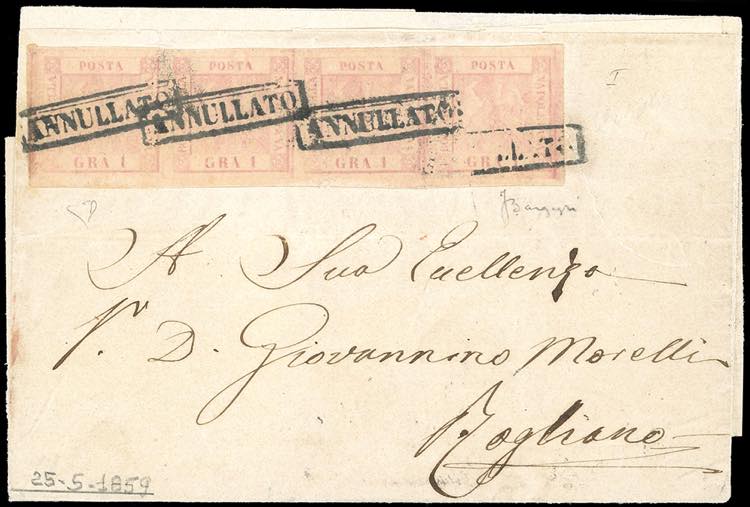 POSTA POSTA POSTA POSTA
ANNULLATO ANNULLATO ANNULLATO LLATO
GRA 1 GRA 1 GRA 1 GRA 1
I
A Sua Eccellenza
D. Giovannino Morelli
Rogliano
25-5-1859